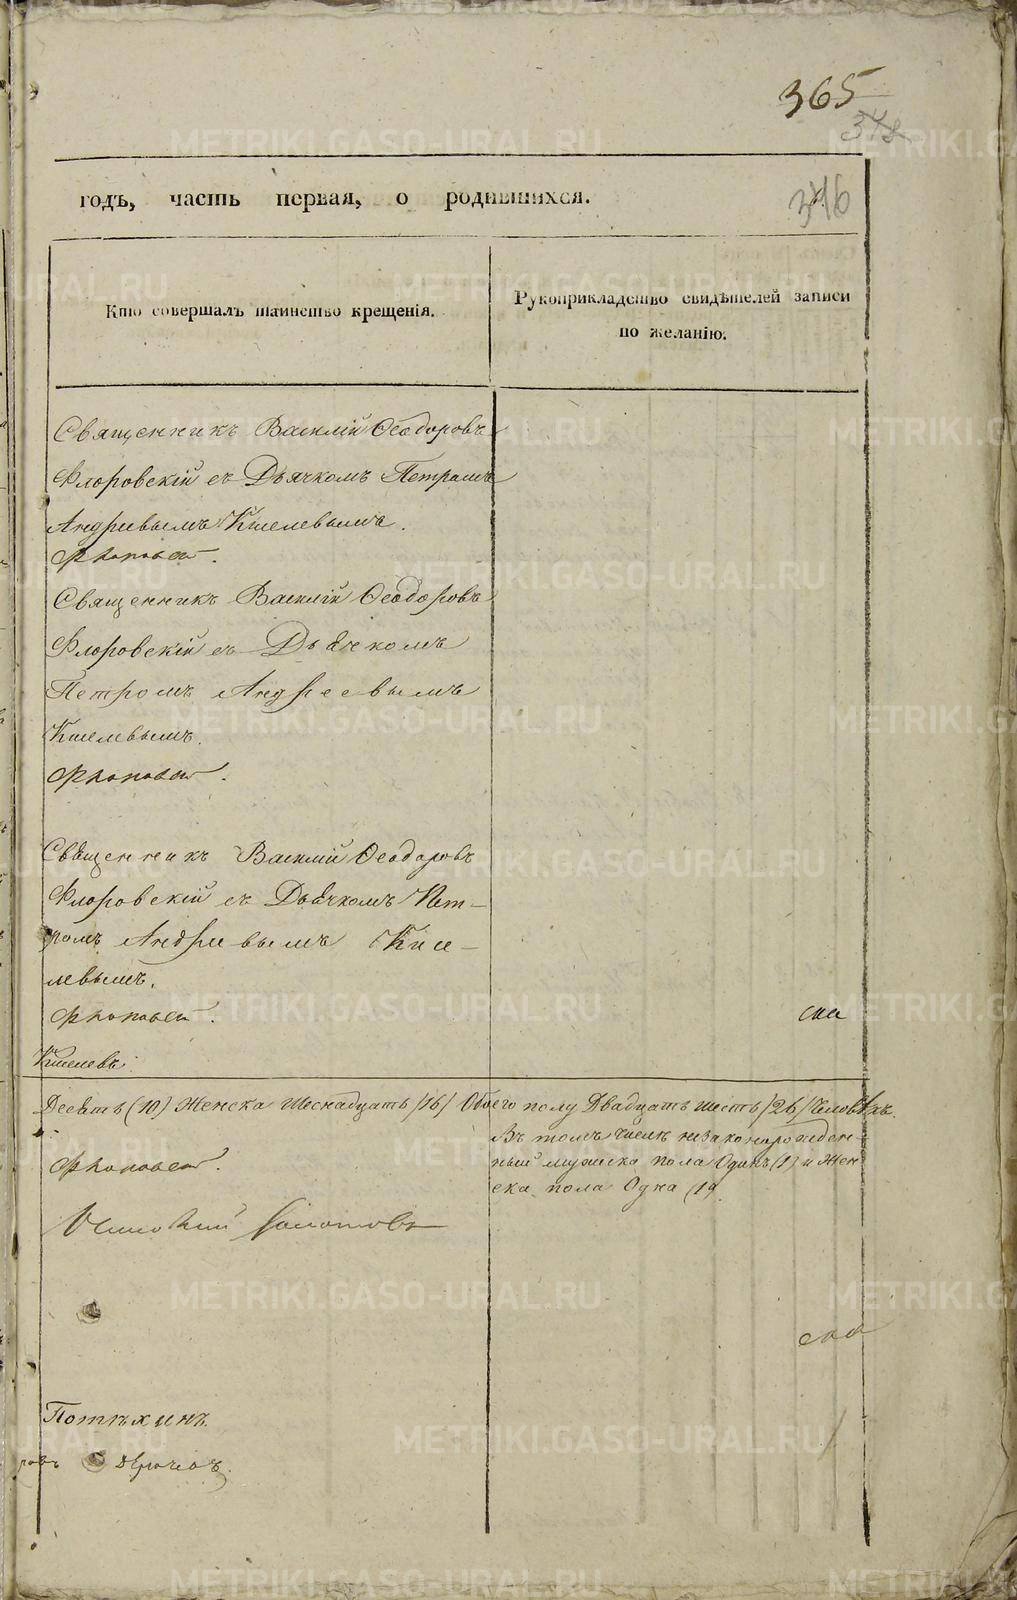 365
348
346
годъ, часть первая, о родившихся.
Кто совершалъ таинство крещенія.
Рукоприкладство свидѣтелей записи
по желанію.
Священникъ Василій Ѳеодоровъ
Флоровскій съ Дьячкомъ Петромъ
Андреевымъ Киселевымъ.
Священникъ Василій Ѳеодоровъ
Флоровскій съ Дьячкомъ
Петромъ Андреевымъ
Киселевымъ.
Священникъ Василій Ѳеодоровъ
Флоровскій съ Дьячкомъ Пет-
ромъ Андреевымъ Кисе-
левымъ.
Киселевъ.
Десять (10) Женска Шеснадцать /16/ Обоего полу Двадцать шесть /26/ Человѣкъ.
Въ томъ числѣ незаконорожден-
ный мужска пола Одинъ (1) и Жен
ска пола Одна (1)
Потѣхинъ
ровъ
METRIKI.GASO-URAL.RU